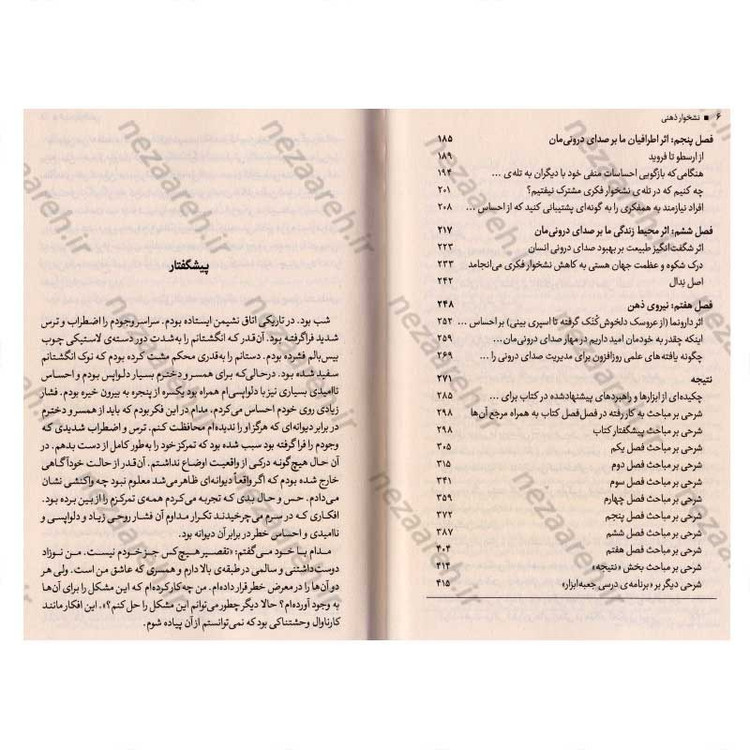 ۶ ■ نشخوار ذهنی
فصل پنجم: اثر اطرافیان ما بر صدای درونی‌مان ۱۸۵
از ارسطو تا فروید ۱۸۹
هنگامی‌که بازگویی احساسات منفی خود با دیگران به تله‌ی ... ۱۹۴
چه کنیم که در تله‌ی نشخوار فکری مشترک نیفتیم؟ ۲۰۱
افراد نیازمند به همفکری را به گونه‌ای پشتیبانی کنید که از احساس ... ۲۰۸
فصل ششم: اثر محیط زندگی ما بر صدای درونی‌مان ۲۱۷
اثر شگفت‌انگیز طبیعت بر بهبود صدای درونی انسان ۲۲۳
درک شکوه و عظمت جهان هستی به کاهش نشخوار فکری می‌انجامد ۲۳۳
اصل نَدال ۲۴۲
فصل هفتم: نیروی ذهن ۲۴۸
اثر دارونما (از عروسک دلخوش‌کُنَک گرفته تا اسپری بینی) بر احساس ... ۲۵۲
اینکه چقدر به خودمان امید داریم در مهار صدای درونی‌مان... ۲۵۹
چگونه یافته‌های علمی روزافزون برای مدیریت صدای درونی را ... ۲۶۹
نتیجه ۲۷۱
چکیده‌ای از ابزارها و راهبردهای پیشنهادشده در کتاب برای ... ۲۸۵
شرحی بر مباحث به کار رفته در فصل‌فصل کتاب به همراه مرجع آن‌ها ۲۹۸
شرحی بر مباحث پیشگفتار کتاب ۲۹۸
شرحی بر مباحث فصل یکم ۳۰۵
شرحی بر مباحث فصل دوم ۳۱۵
شرحی بر مباحث فصل سوم ۳۴۱
شرحی بر مباحث فصل چهارم ۳۵۹
شرحی بر مباحث فصل پنجم ۳۷۲
شرحی بر مباحث فصل ششم ۳۸۷
شرحی بر مباحث فصل هفتم ۴۰۴
شرحی بر مباحث بخش «نتیجه» ۴۱۴
شرحی دیگر بر «برنامه‌ی درسی جعبه‌ابزار» ۴۱۵
پیشگفتار
شب بود. در تاریکی اتاق نشیمن ایستاده بودم. سراسر وجودم را اضطراب و ترس
شدید فراگرفته بود. آن‌قدر که انگشتانم را به‌شدت دور دسته‌ی لاستیکی چوب
بیس‌بالم فشرده بودم. دستانم را به‌قدری محکم مشت کرده بودم که نوک انگشتانم
سفید شده بود. درحالی‌که برای همسر و دخترم بسیار دلواپس بودم و احساس
ناامیدی بسیاری نیز با دلواپسی‌ام همراه بود یکسره از پنجره به بیرون خیره بودم. فشار
زیادی روی خودم احساس می‌کردم. مدام در این فکر بودم که باید از همسر و دخترم
در برابر دیوانه‌ای که هرگز او را ندیده‌ام محافظت کنم. ترس و اضطراب شدیدی که
وجودم را فرا گرفته بود سبب شده بود که تمرکز خود را به‌طور کامل از دست بدهم. در
آن حال هیچ‌گونه درکی از واقعیت اوضاع نداشتم. آن‌قدر از حالت خودآگاهی
خارج شده بودم که اگر واقعاً دیوانه‌ای ظاهر می‌شد معلوم نبود چه واکنشی نشان
می‌دادم. حس و حال بدی که تجربه می‌کردم همه‌ی تمرکزم را از بین برده بود.
افکاری که در سرم می‌چرخیدند تکرار مداوم آن فشار روحی زیاد و دلواپسی و
ناامیدی و احساس خطر در برابر آن دیوانه بود.
مدام با خود می‌گفتم: «تقصیر هیچ‌کس جز خودم نیست. من نوزاد
دوست‌داشتنی و سالمی در طبقه‌ی بالا دارم و همسری که عاشق من است. ولی هر
دو آن‌ها را در معرض خطر قرار داده‌ام. من چه کار کرده‌ام که این مشکل را برای آن‌ها
به وجود آورده‌ام؟ حالا دیگر چطور می‌توانم این مشکل را حل کنم؟». این افکار مانند
کارناوال وحشتناکی بود که نمی‌توانستم از آن پیاده شوم.
nezaareh.ir
nezaareh.ir
nezaareh.ir
nezaareh.ir
nezaareh.ir
nezaareh.ir